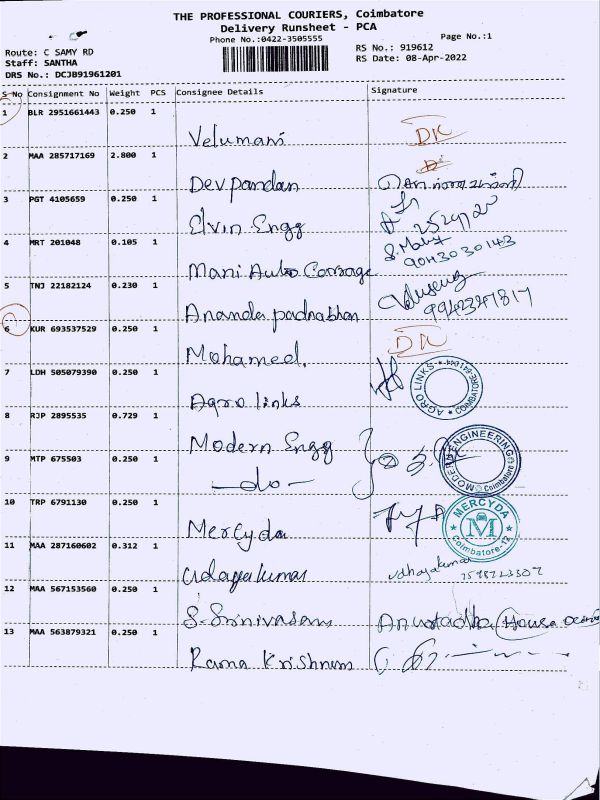 THE PROFESSIONAL COURIERS, Coimbatore
Delivery Runsheet - PCA
Phone No.:0422-3505555
Page No.:1
Route: C SAMY RD
RS No.: 919612
Staff: SANTHA
RS Date: 08-Apr-2022
DRS No.: DCJB91961201
S No Consignment No Weight PCS Consignee Details Signature
1 BLR 2951661443 0.250 1
Velumani DK
2 MAA 285717169 2.800 1
Devpandan
3 PGT 4105659 0.250 1
Elvin Engg
4 MRT 201048 0.105 1
S. Mani
9043030143
Mani Auto Garage
5 TNJ 22182124 0.230 1
9942347817
Ananda padnabhan
6 KUR 693537529 0.250 1
Mohamed. DK
7 LDH 505079390 0.250 1
AGRO LINKS
Agro links
8 RJP 2895535 0.729 1
Modern Engg
MODERN ENGINEERING
Coimbatore
9 MTP 675503 0.250 1
-do-
10 TRP 6791130 0.250 1
MERCYDA
M
Coimbatore-12
Mercyda
11 MAA 287160602 0.312 1
Udayakumar
udhayakumar
12 MAA 567153560 0.250 1
S. Srinivasan House
13 MAA 563879321 0.250 1
Rama Krishnan